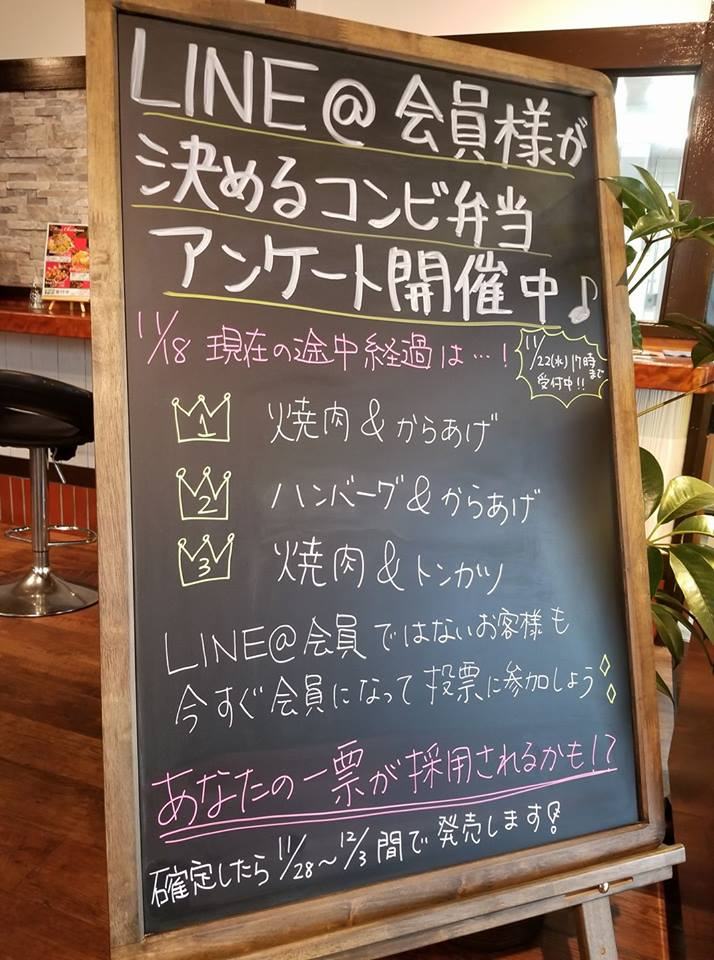 LINE@会員様が
決めるコンビ弁当
アンケート開催中♪
11/18 現在の途中経過は…!
11/22(水)17時まで
受付中!!
1 焼肉&からあげ
2 ハンバーグ&からあげ
3 焼肉&トンカツ
LINE@会員ではないお客様も
今すぐ会員になって投票に参加しよう
あなたの一票が採用されるかも!?
確定したら11/28〜12/3間で発売します!